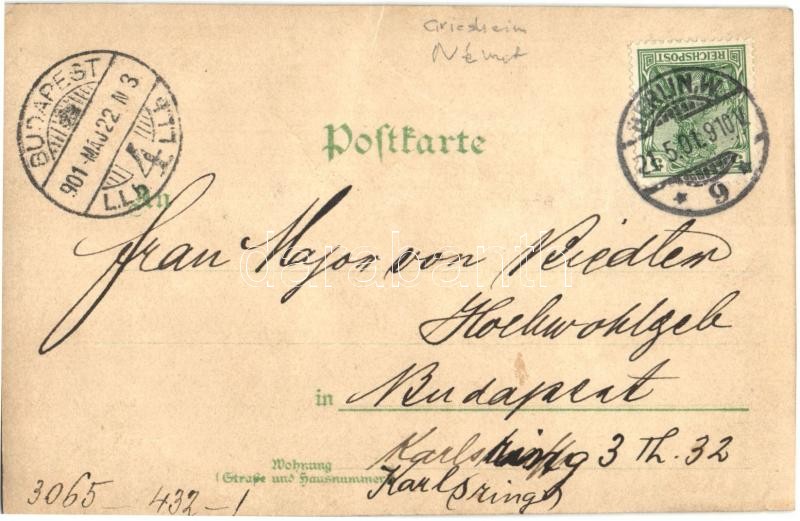 Griesheim
Német
REICHSPOST
BERLIN, W.
21.5.01.9-10V.
* 9 *
BUDAPEST
901-MÁJ 22. N 3
4
Postkarte
An
Frau Major von Riedler
Hochwohlgeb
in Budapest
Karlsring 3 Th. 32
Wohnung
(Straße und Hausnummer)
Karlsring
3065-432-1
darabanth